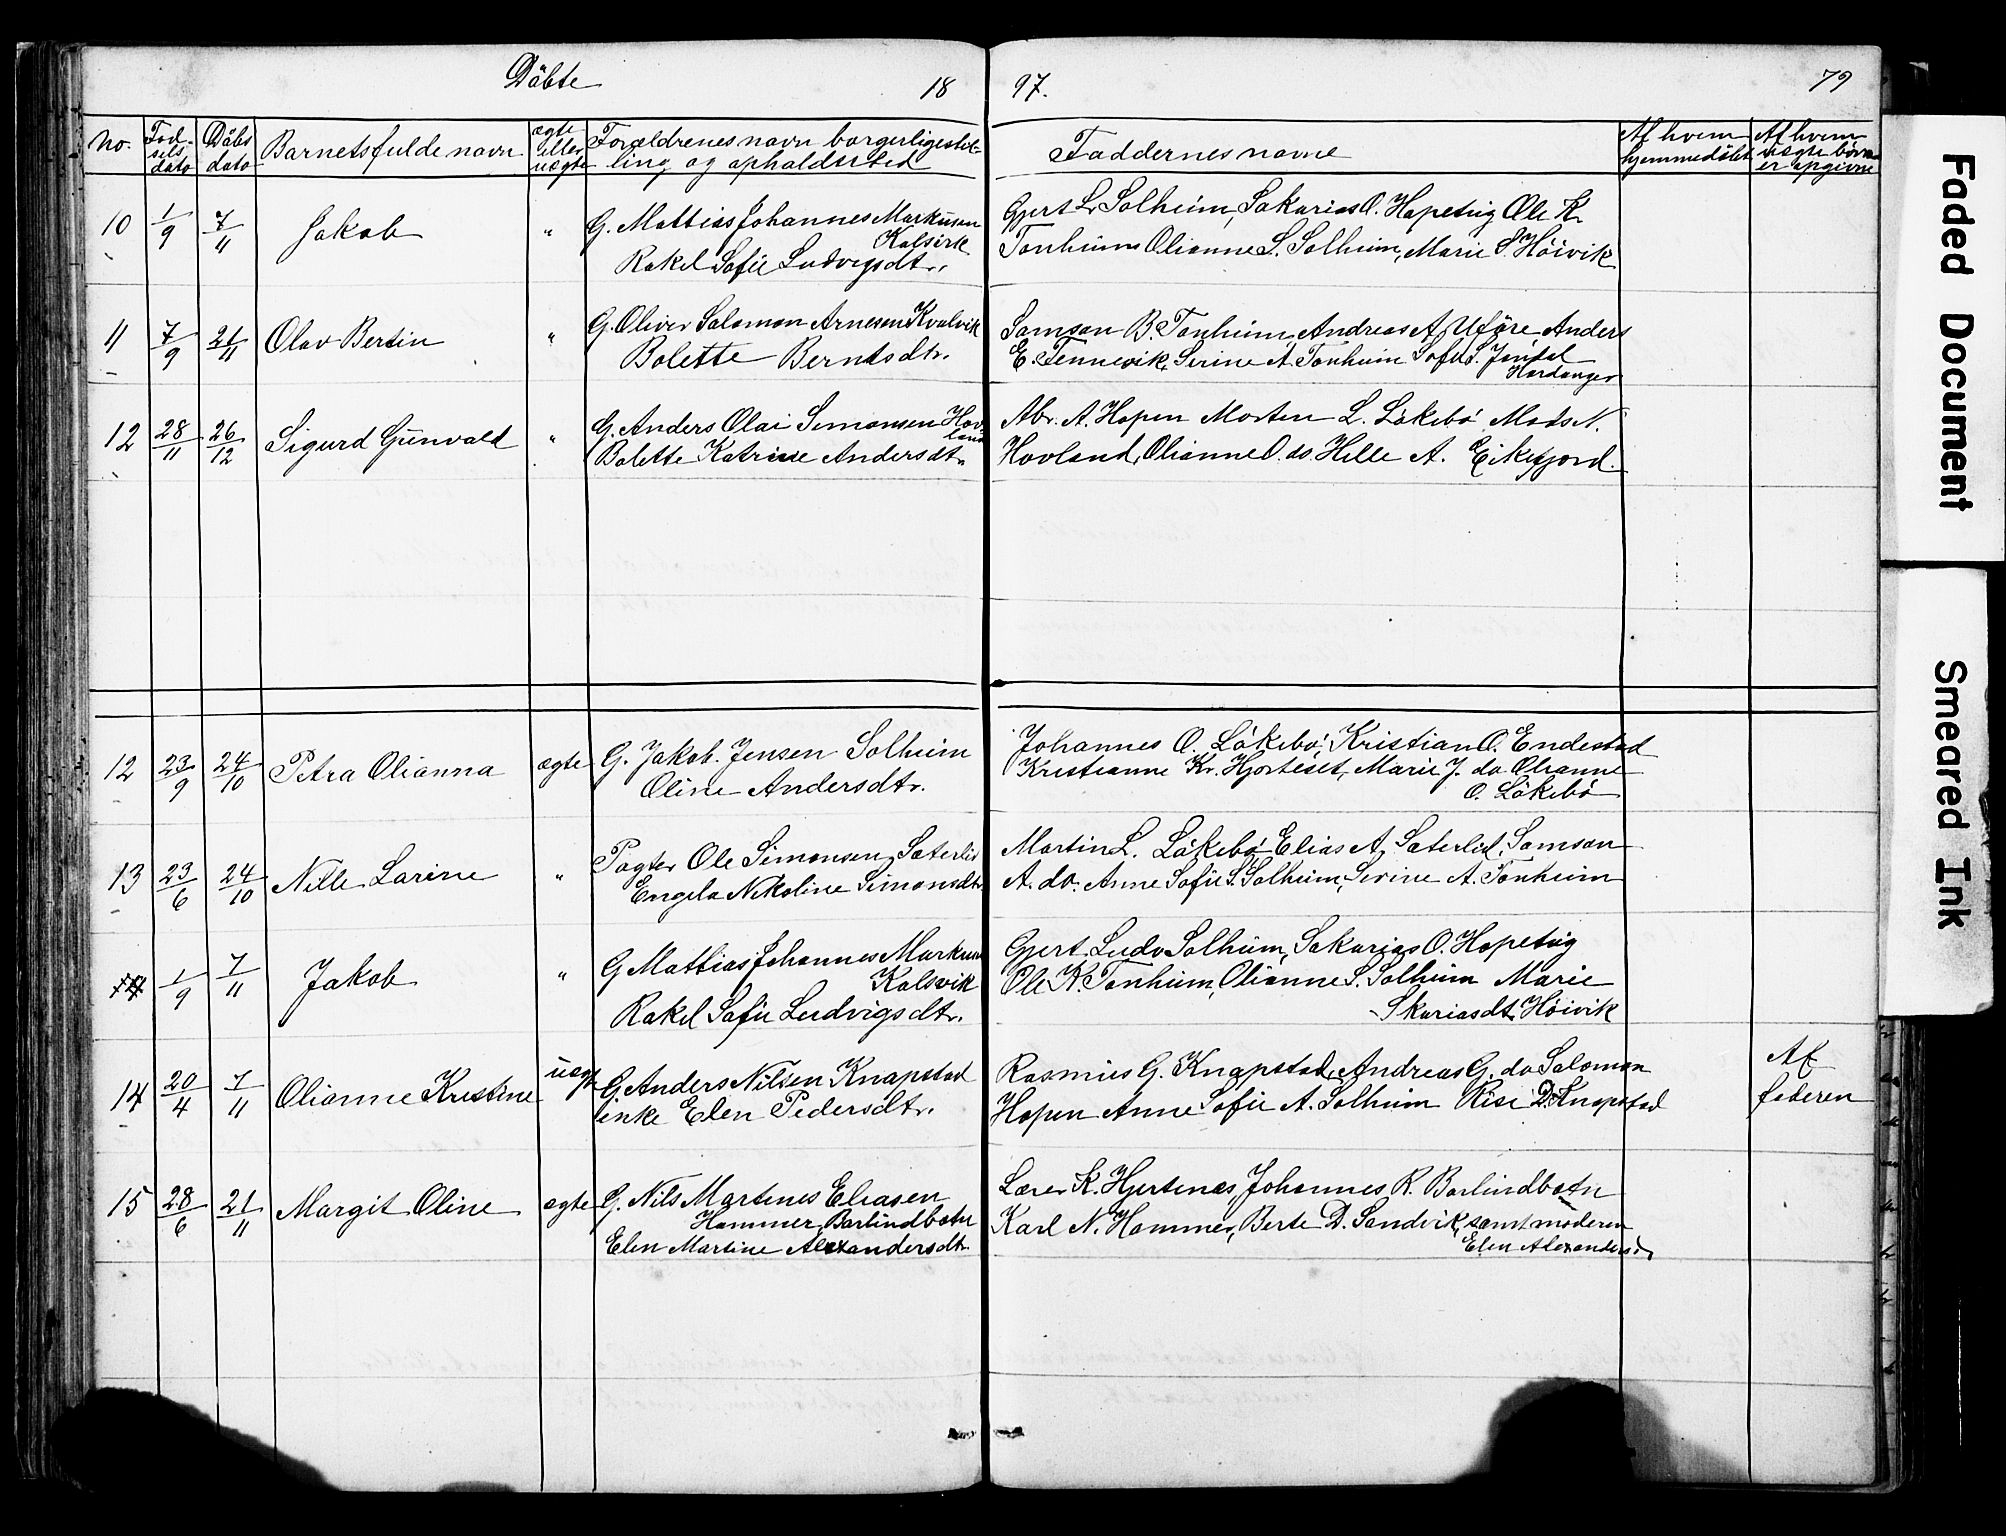 Döbte 18 97. 79
No. Fød-selsdato Döbsdato Barnetsfulde navn ægte eller uægte Forældrenes navn borgerligestil-ling og opholdssted Faddernes navne Af hvem hjemmedöbt Af hvem uægte börn er opgivne
10 1/9 7/11 Jakob " G. Mattias Johannes Markusen Gjert L. Solheim, Sakarias O. Hopeteig Ole K.
Kalsvik Tonheim Olianne S. Solheim, Marie S. Höivik
Rakel Sofie Ludvigsdtr.
11 7/9 21/11 Olav Bertin " G. Oliver Salomon Arnesen Kvalvik Samson B. Tonheim, Andreas A. Uföre Anders
Bolette Berntsdtr. E. Tennevik, Serine A. Tonheim Sofie S. Jondal
Hardanger
12 28/11 26/12 Sigurd Gunvald " G. Anders Olai Simonsen Hov- Abr. A. Hopen Morten L. Lökebö Mads N.
land
Bolette Katrine Andersdtr. Hovland, Olianne O. do. Helle A. Eikefjord.
12 23/9 24/10 Petra Olianna ægte G. Jakob. Jensen Solheim Johannes O. Lökebö, Kristian O. Endestad
Oline Andersdtr. Kristianne Kr. Hjorteset, Marie J. do Olianne
O. Lökebö
13 23/6 24/10 Nille Larine " Pagter Ole Simonsen Sæterlid Martin L. Lökebö Elias A. Sæterlid, Samson
Engela Nikoline Simonsdtr. A. do. Anne Sofie S. Solheim, Serine A. Tonheim
14 1/9 7/11 Jakob " G Mattias Johannes Markusen Gjert Ludv Solheim, Sakarias O. Hopeteig
Kalsvik Ole K. Tonheim, Olianne S. Solheim Marie
Rakel Sofie Ludvigsdtr. Skariasdt. Höivik
14 20/4 7/11 Olianne Kristine uægte G Anders Nilsen Knapstad Rasmus G. Knapstad, Andreas G. do Salomon Af
enke Elen Pedersdtr. Hopen Anne Sofie A. Solheim Rise D. Knapstad faderen
15 28/6 21/11 Margit Oline ægte G. Nils Martines Eliasen Lærer K. Hjertenes, Johannes R. Barlindbotn
Hammer, Barlindbotn Karl N. Hammer, Berte D. Sandvik, samt moderen
Elen Martine Alexandersdtr. Elen Alexandersd.
Faded Document
Smeared Ink